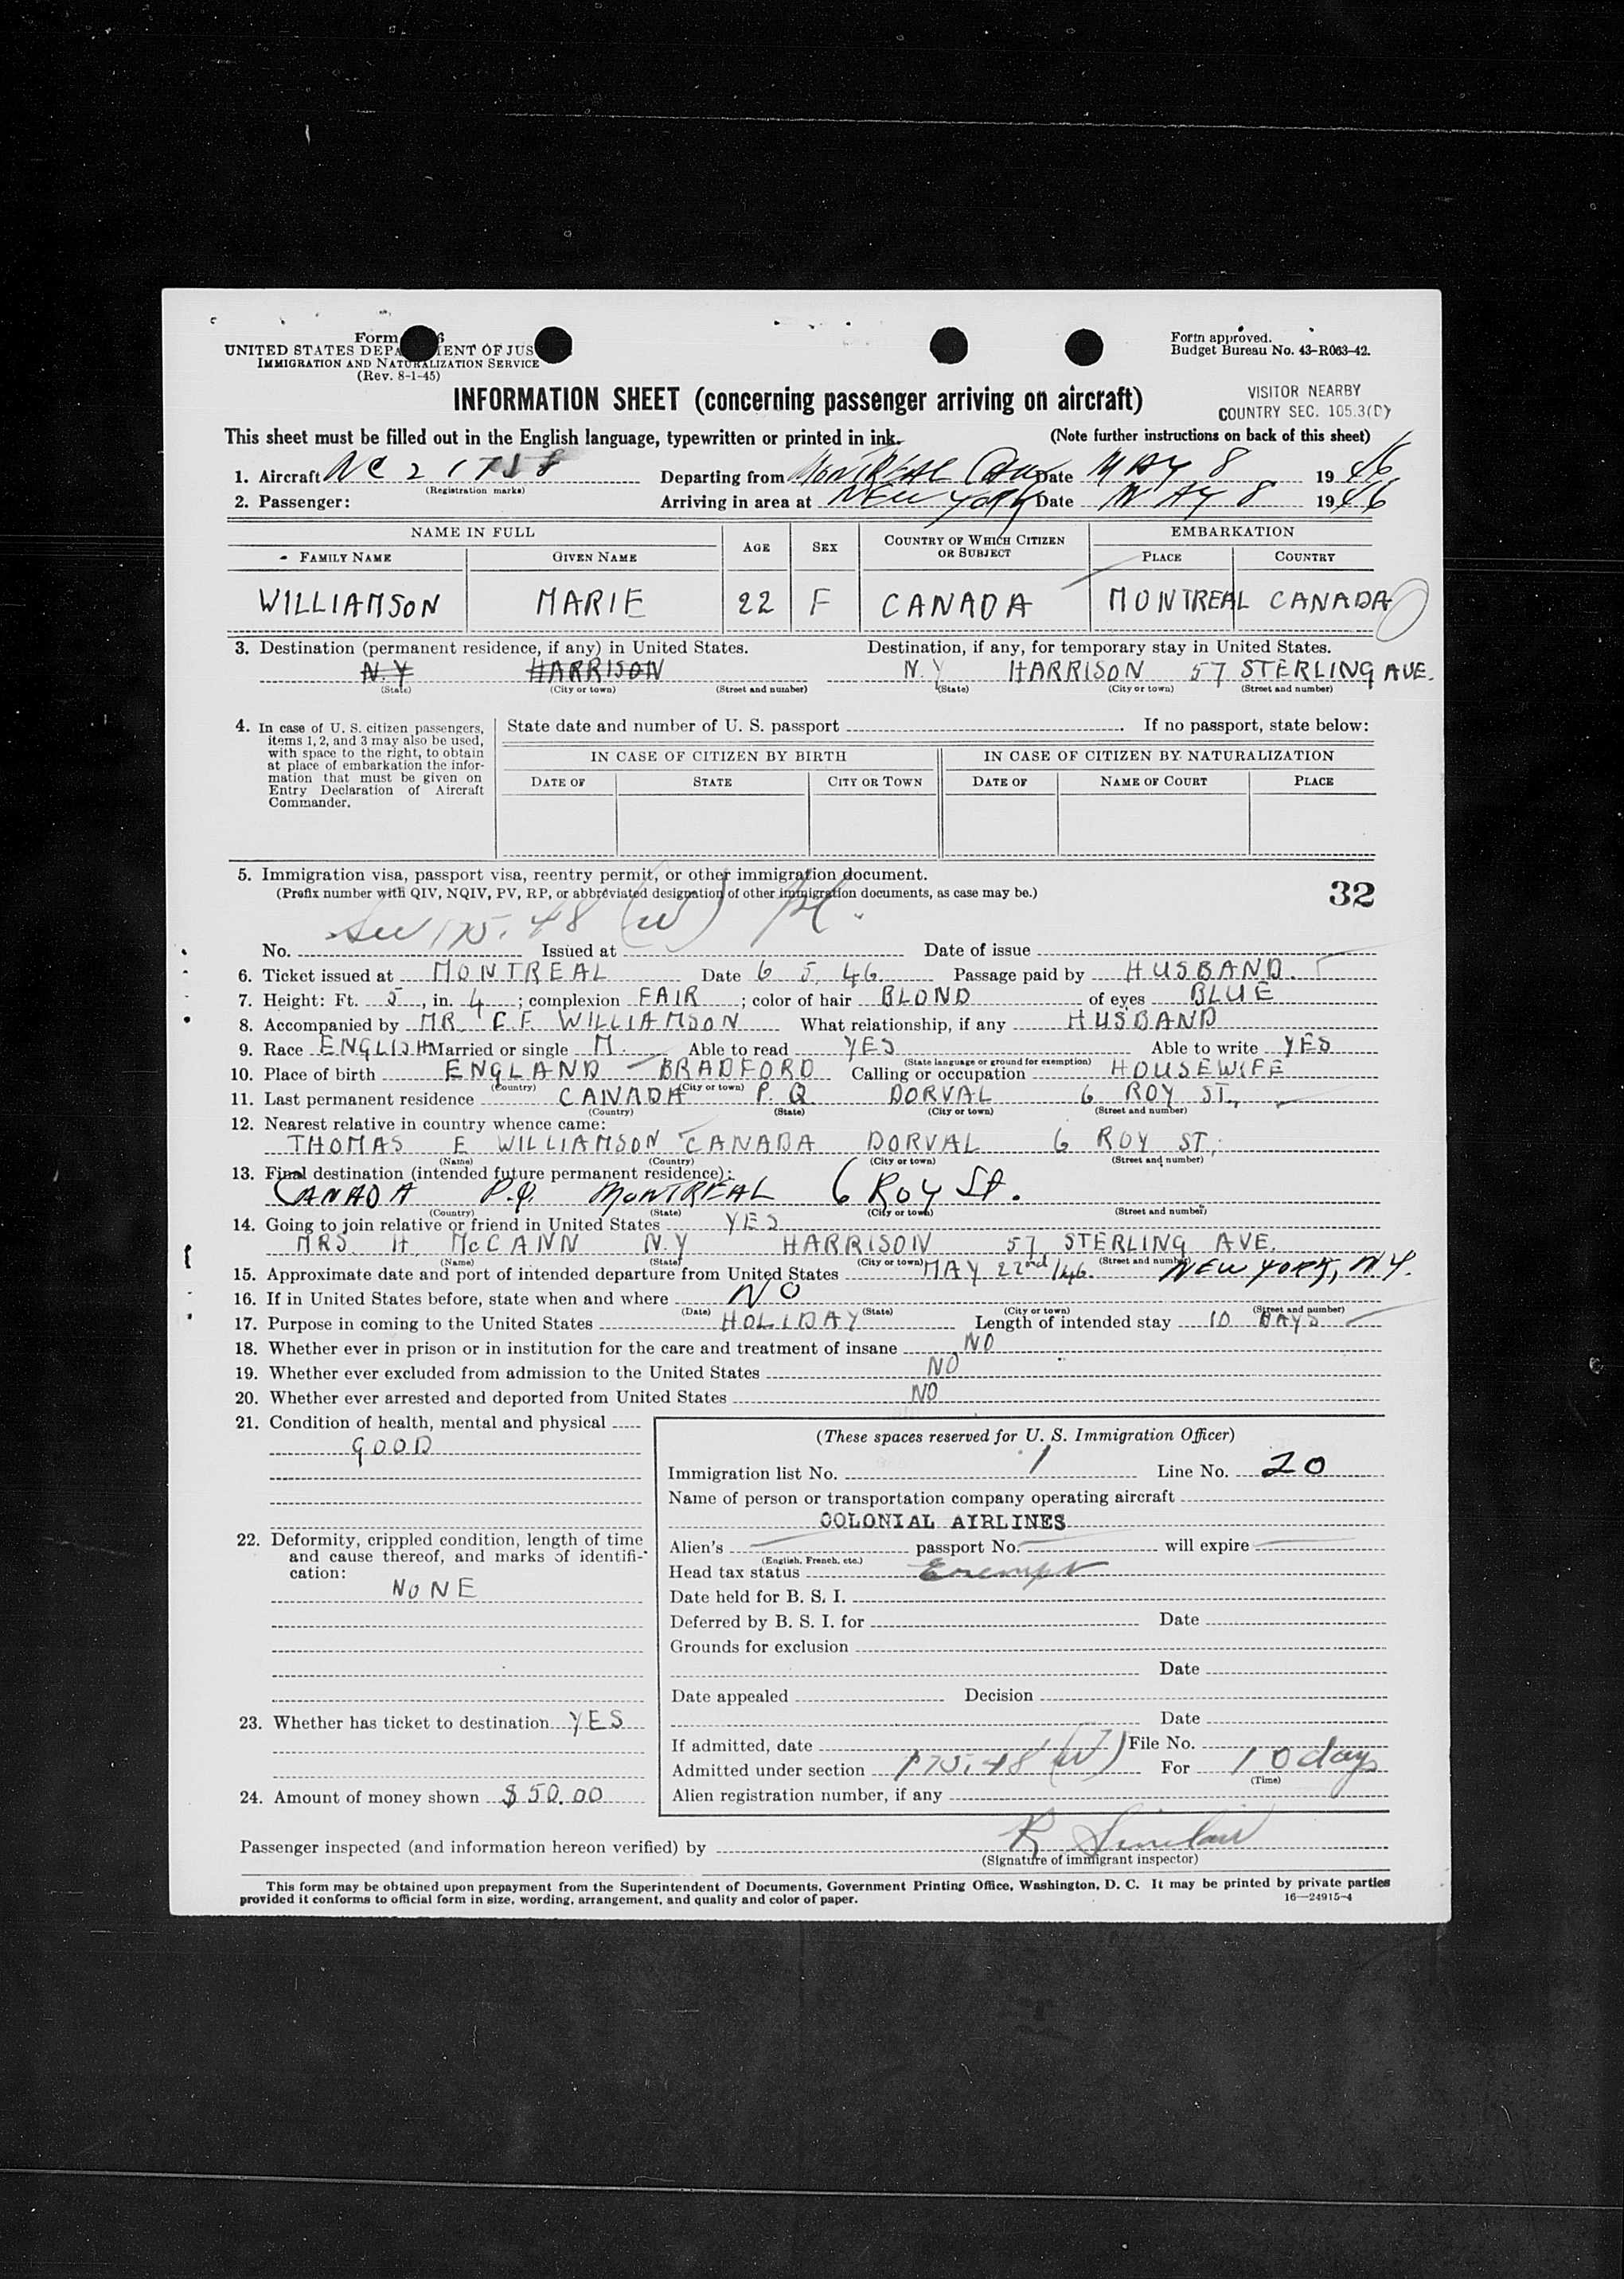 Form
UNITED STATES DEPA IENT OF JUS
IMMIGRATION AND NATURALIZATION SERVICE
(Rev. 8-1-45)
Form approved.
Budget Bureau No. 43-R063-42.
INFORMATION SHEET (concerning passenger arriving on aircraft)
VISITOR NEARBY
COUNTRY SEC. 105.3(D)
This sheet must be filled out in the English language, typewritten or printed in ink.
(Note further instructions on back of this sheet)
1. Aircraft NC 21758 Departing from MONTREAL CAN Date MAY 8 1946
(Registration marks)
2. Passenger: Arriving in area at NEW YORK Date MAY 8 1946
NAME IN FULL AGE SEX COUNTRY OF WHICH CITIZEN OR SUBJECT EMBARKATION
FAMILY NAME GIVEN NAME PLACE COUNTRY
WILLIAMSON MARIE 22 F CANADA MONTREAL CANADA
3. Destination (permanent residence, if any) in United States. Destination, if any, for temporary stay in United States.
N.Y HARRISON N.Y HARRISON 57 STERLING AVE.
(State) (City or town) (Street and number) (State) (City or town) (Street and number)
4. In case of U. S. citizen passengers,
items 1, 2, and 3 may also be used,
with space to the right, to obtain
at place of embarkation the infor-
mation that must be given on
Entry Declaration of Aircraft
Commander.
State date and number of U. S. passport If no passport, state below:
IN CASE OF CITIZEN BY BIRTH IN CASE OF CITIZEN BY NATURALIZATION
DATE OF STATE CITY OR TOWN DATE OF NAME OF COURT PLACE
5. Immigration visa, passport visa, reentry permit, or other immigration document.
(Prefix number with QIV, NQIV, PV, RP, or abbreviated designation of other immigration documents, as case may be.)
32
175.48 (W)
No. Issued at Date of issue
6. Ticket issued at MONTREAL Date 6 5. 46. Passage paid by HUSBAND.
7. Height: Ft. 5, in. 4; complexion FAIR; color of hair BLOND of eyes BLUE
8. Accompanied by MR. WILLIAMSON What relationship, if any HUSBAND
9. Race ENGLISH Married or single M. Able to read YES Able to write YES
(State language or ground for exemption)
10. Place of birth ENGLAND - BRADFORD Calling or occupation HOUSEWIFE
(Country) (City or town)
11. Last permanent residence CANADA P.Q. DORVAL 6 ROY ST.,
(Country) (State) (City or town) (Street and number)
12. Nearest relative in country whence came:
THOMAS E WILLIAMSON CANADA DORVAL 6 ROY ST.
(Name) (Country) (City or town) (Street and number)
13. Final destination (intended future permanent residence):
CANADA P.Q. MONTREAL 6 ROY St.
(Country) (State) (City or town) (Street and number)
14. Going to join relative or friend in United States YES
MRS. H. McCANN N.Y HARRISON 57 STERLING AVE.
(Name) (State) (City or town) (Street and number)
15. Approximate date and port of intended departure from United States MAY 22nd/46. NEW YORK, N.Y.
16. If in United States before, state when and where NO
(Date) (State) (City or town) (Street and number)
17. Purpose in coming to the United States HOLIDAY Length of intended stay 10 DAYS
18. Whether ever in prison or in institution for the care and treatment of insane NO
19. Whether ever excluded from admission to the United States NO
20. Whether ever arrested and deported from United States NO
21. Condition of health, mental and physical
GOOD
22. Deformity, crippled condition, length of time
and cause thereof, and marks of identifi-
cation:
NONE
23. Whether has ticket to destination YES
24. Amount of money shown $50.00
(These spaces reserved for U. S. Immigration Officer)
Immigration list No. 1 Line No. 20
Name of person or transportation company operating aircraft
COLONIAL AIRLINES
Alien's passport No. will expire
(English, French, etc.)
Head tax status Exempt
Date held for B. S. I.
Deferred by B. S. I. for Date
Grounds for exclusion
Date
Date appealed Decision
Date
If admitted, date File No.
Admitted under section 175.48 (W) For 10 days
(Time)
Alien registration number, if any
Passenger inspected (and information hereon verified) by R Sinclair
(Signature of immigrant inspector)
This form may be obtained upon prepayment from the Superintendent of Documents, Government Printing Office, Washington, D. C. It may be printed by private parties
provided it conforms to official form in size, wording, arrangement, and quality and color of paper.
16—24915-4